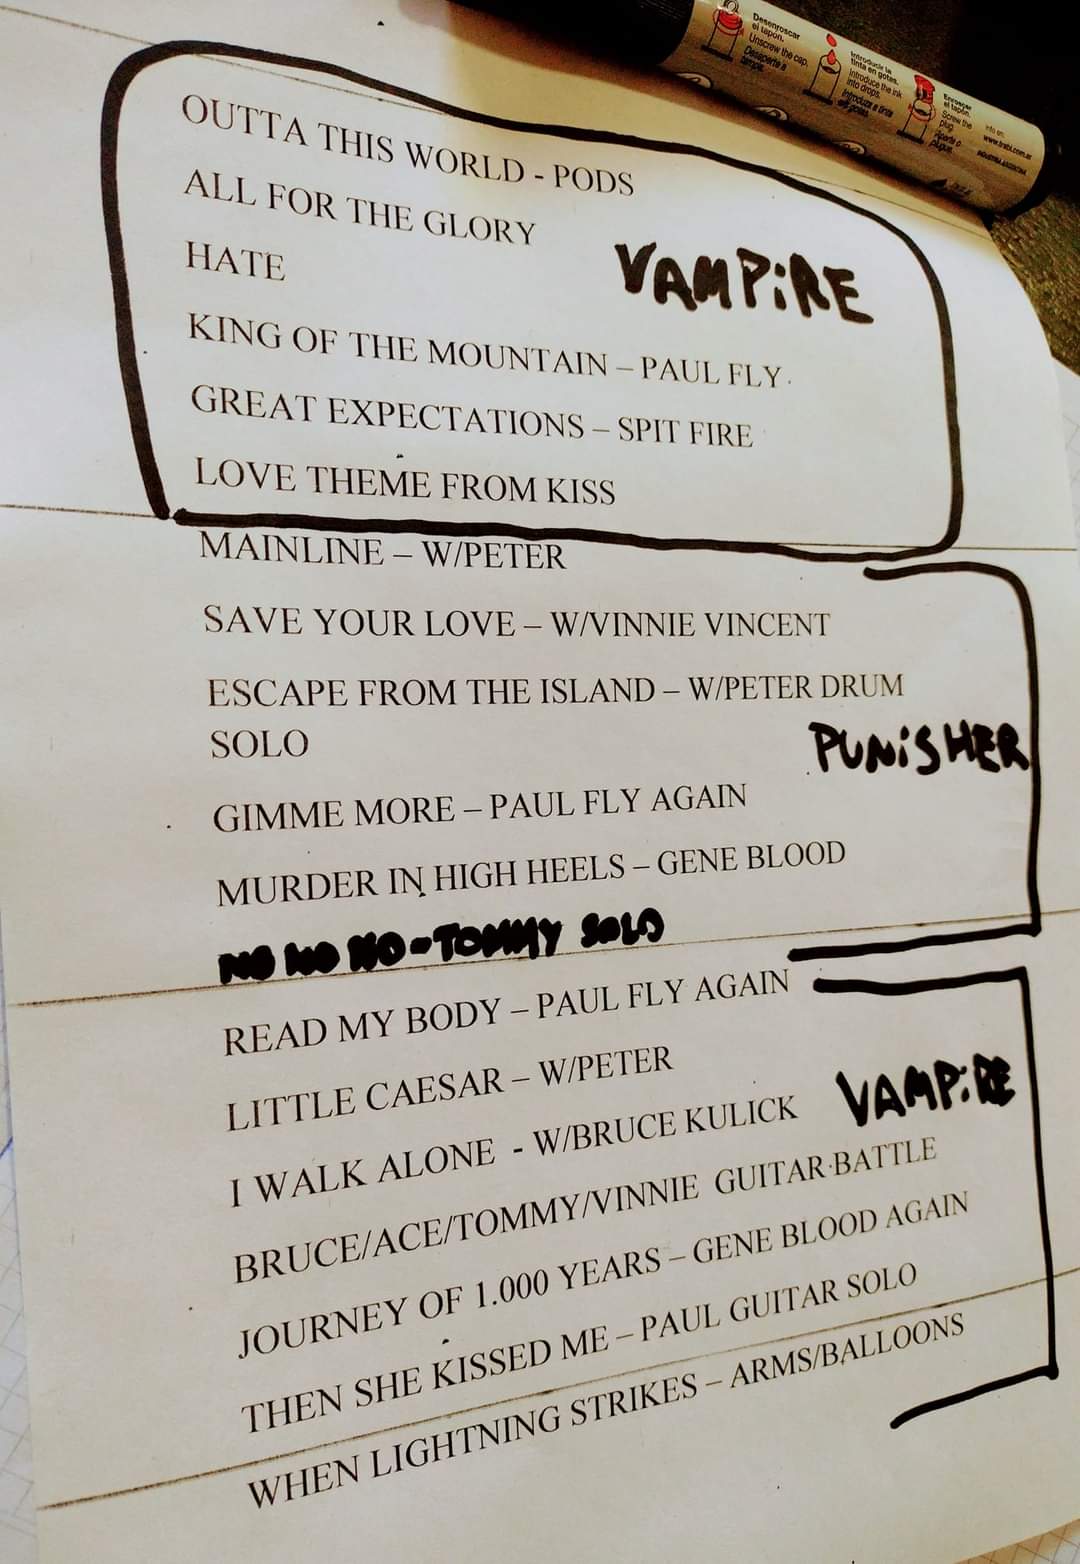 Desenroscar
el tapón.
Unscrew the cap.
Introducir la
tinta en gotas.
Introduce the ink
into drops.
Enroscar
el tapón.
Screw the
plug.
info en:
www.trabi.com.ar
INDUSTRIA ARGENTINA
OUTTA THIS WORLD - PODS
ALL FOR THE GLORY
HATE
VAMPiRE
KING OF THE MOUNTAIN – PAUL FLY
GREAT EXPECTATIONS – SPIT FIRE
LOVE THEME FROM KISS
MAINLINE – W/PETER
SAVE YOUR LOVE – W/VINNIE VINCENT
ESCAPE FROM THE ISLAND – W/PETER DRUM
SOLO
PUNiSHER
GIMME MORE – PAUL FLY AGAIN
MURDER IN HIGH HEELS – GENE BLOOD
NO NO NO - TOMMY SOLO
READ MY BODY – PAUL FLY AGAIN
LITTLE CAESAR – W/PETER
I WALK ALONE - W/BRUCE KULICK
VAMPiRE
BRUCE/ACE/TOMMY/VINNIE GUITAR BATTLE
JOURNEY OF 1.000 YEARS – GENE BLOOD AGAIN
THEN SHE KISSED ME – PAUL GUITAR SOLO
WHEN LIGHTNING STRIKES – ARMS/BALLOONS